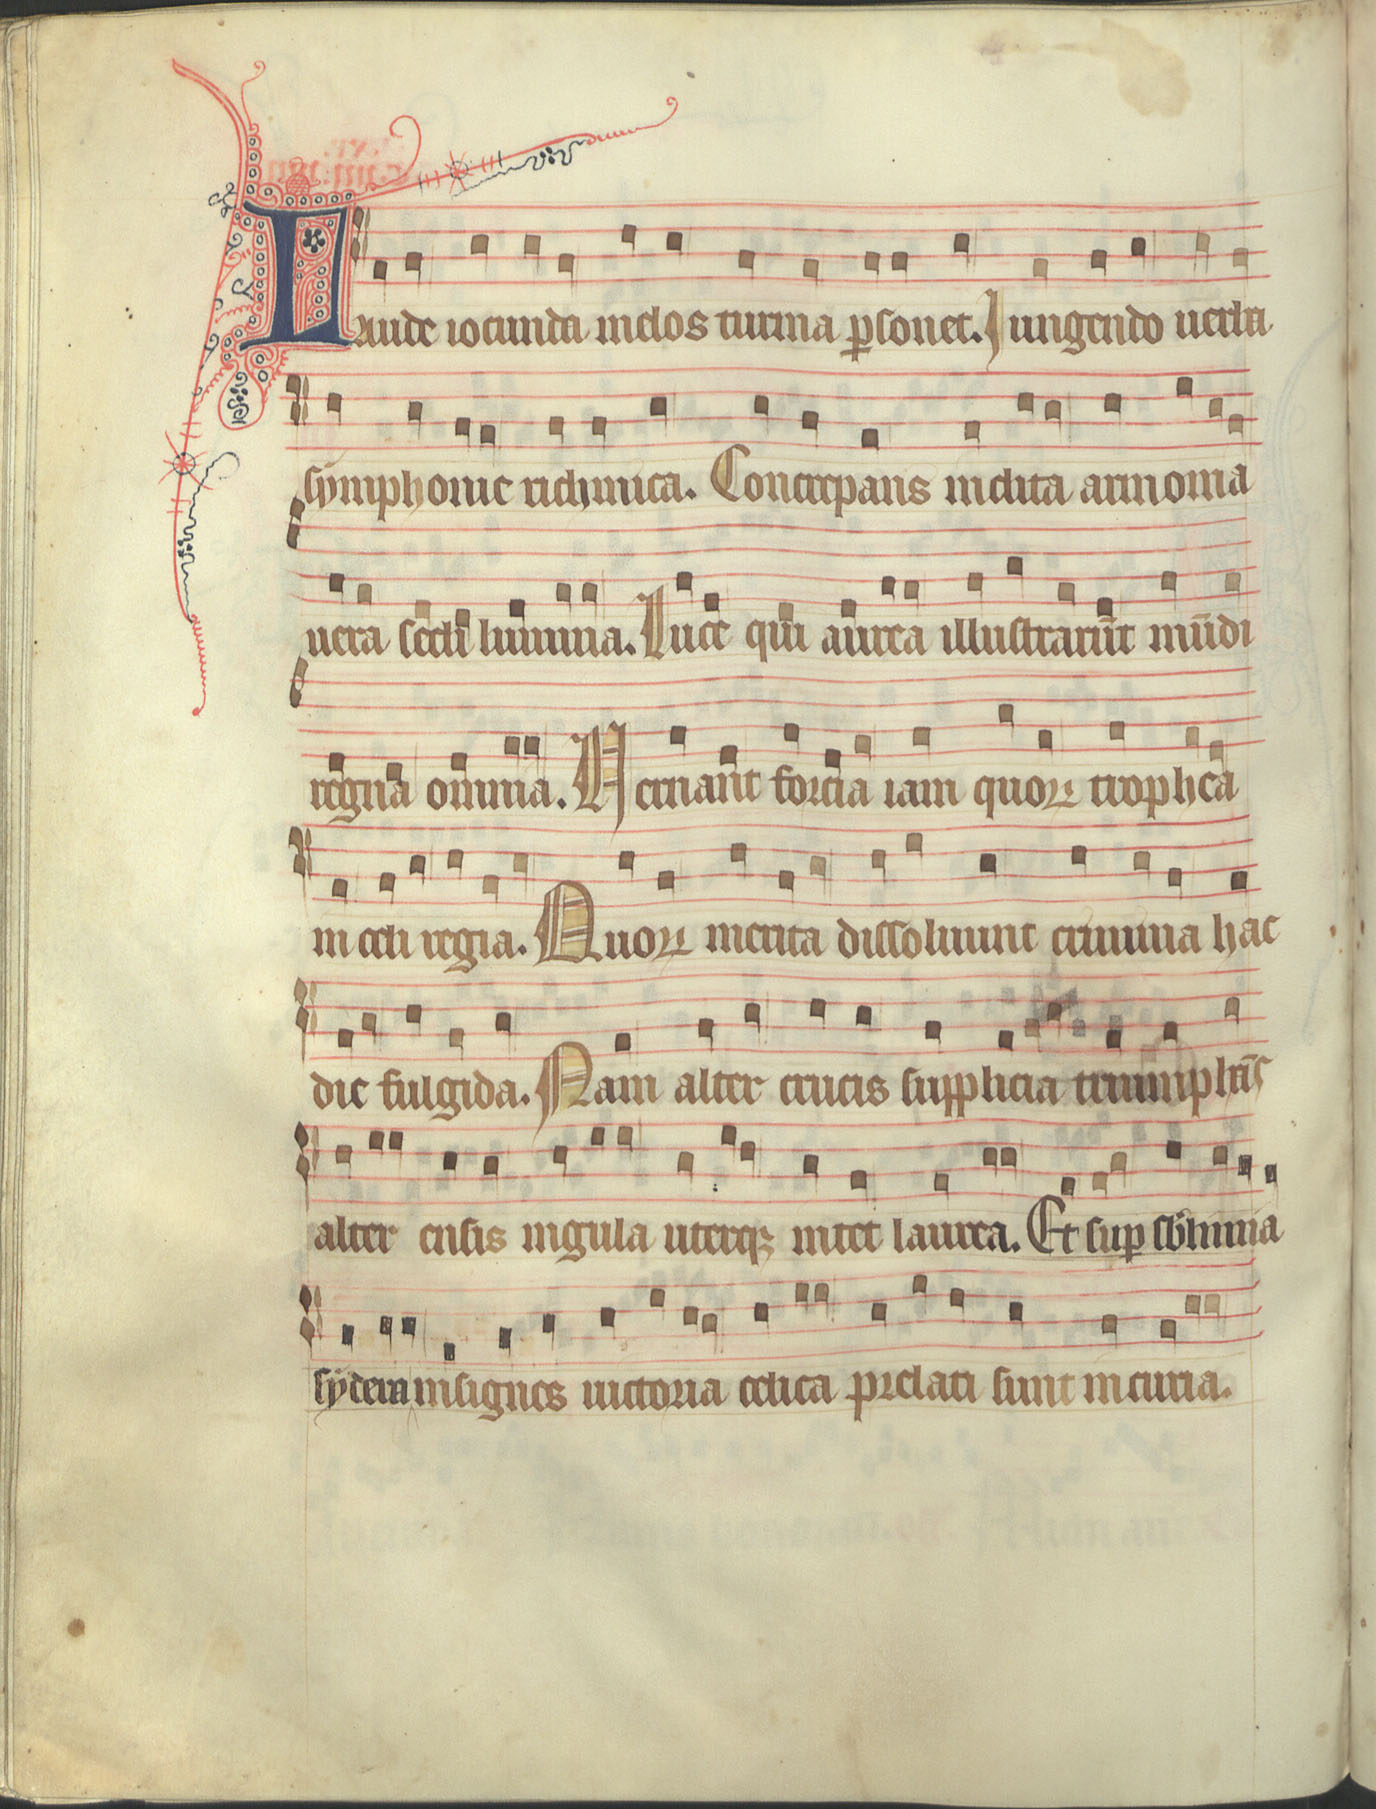 Laude iocunda melos turma ꝑsonet. Iungendo uerba
symphonie richmica. Concrepans inclita armonia
uera secli lumina. Luce qui aurea illustrarūt mūdi
regna omnia. Hernant forcia iam quoꝝ trophea
in celi regia. Quoꝝ merita dissoluunt crimina hac
die fulgida. Nam alter crucis supplicia triumphās
alter ensis iugula uterqꝫ nitet laurea. Et suꝑ sb̄limia
sydera insignes uictoria celica prelati sunt in curia.